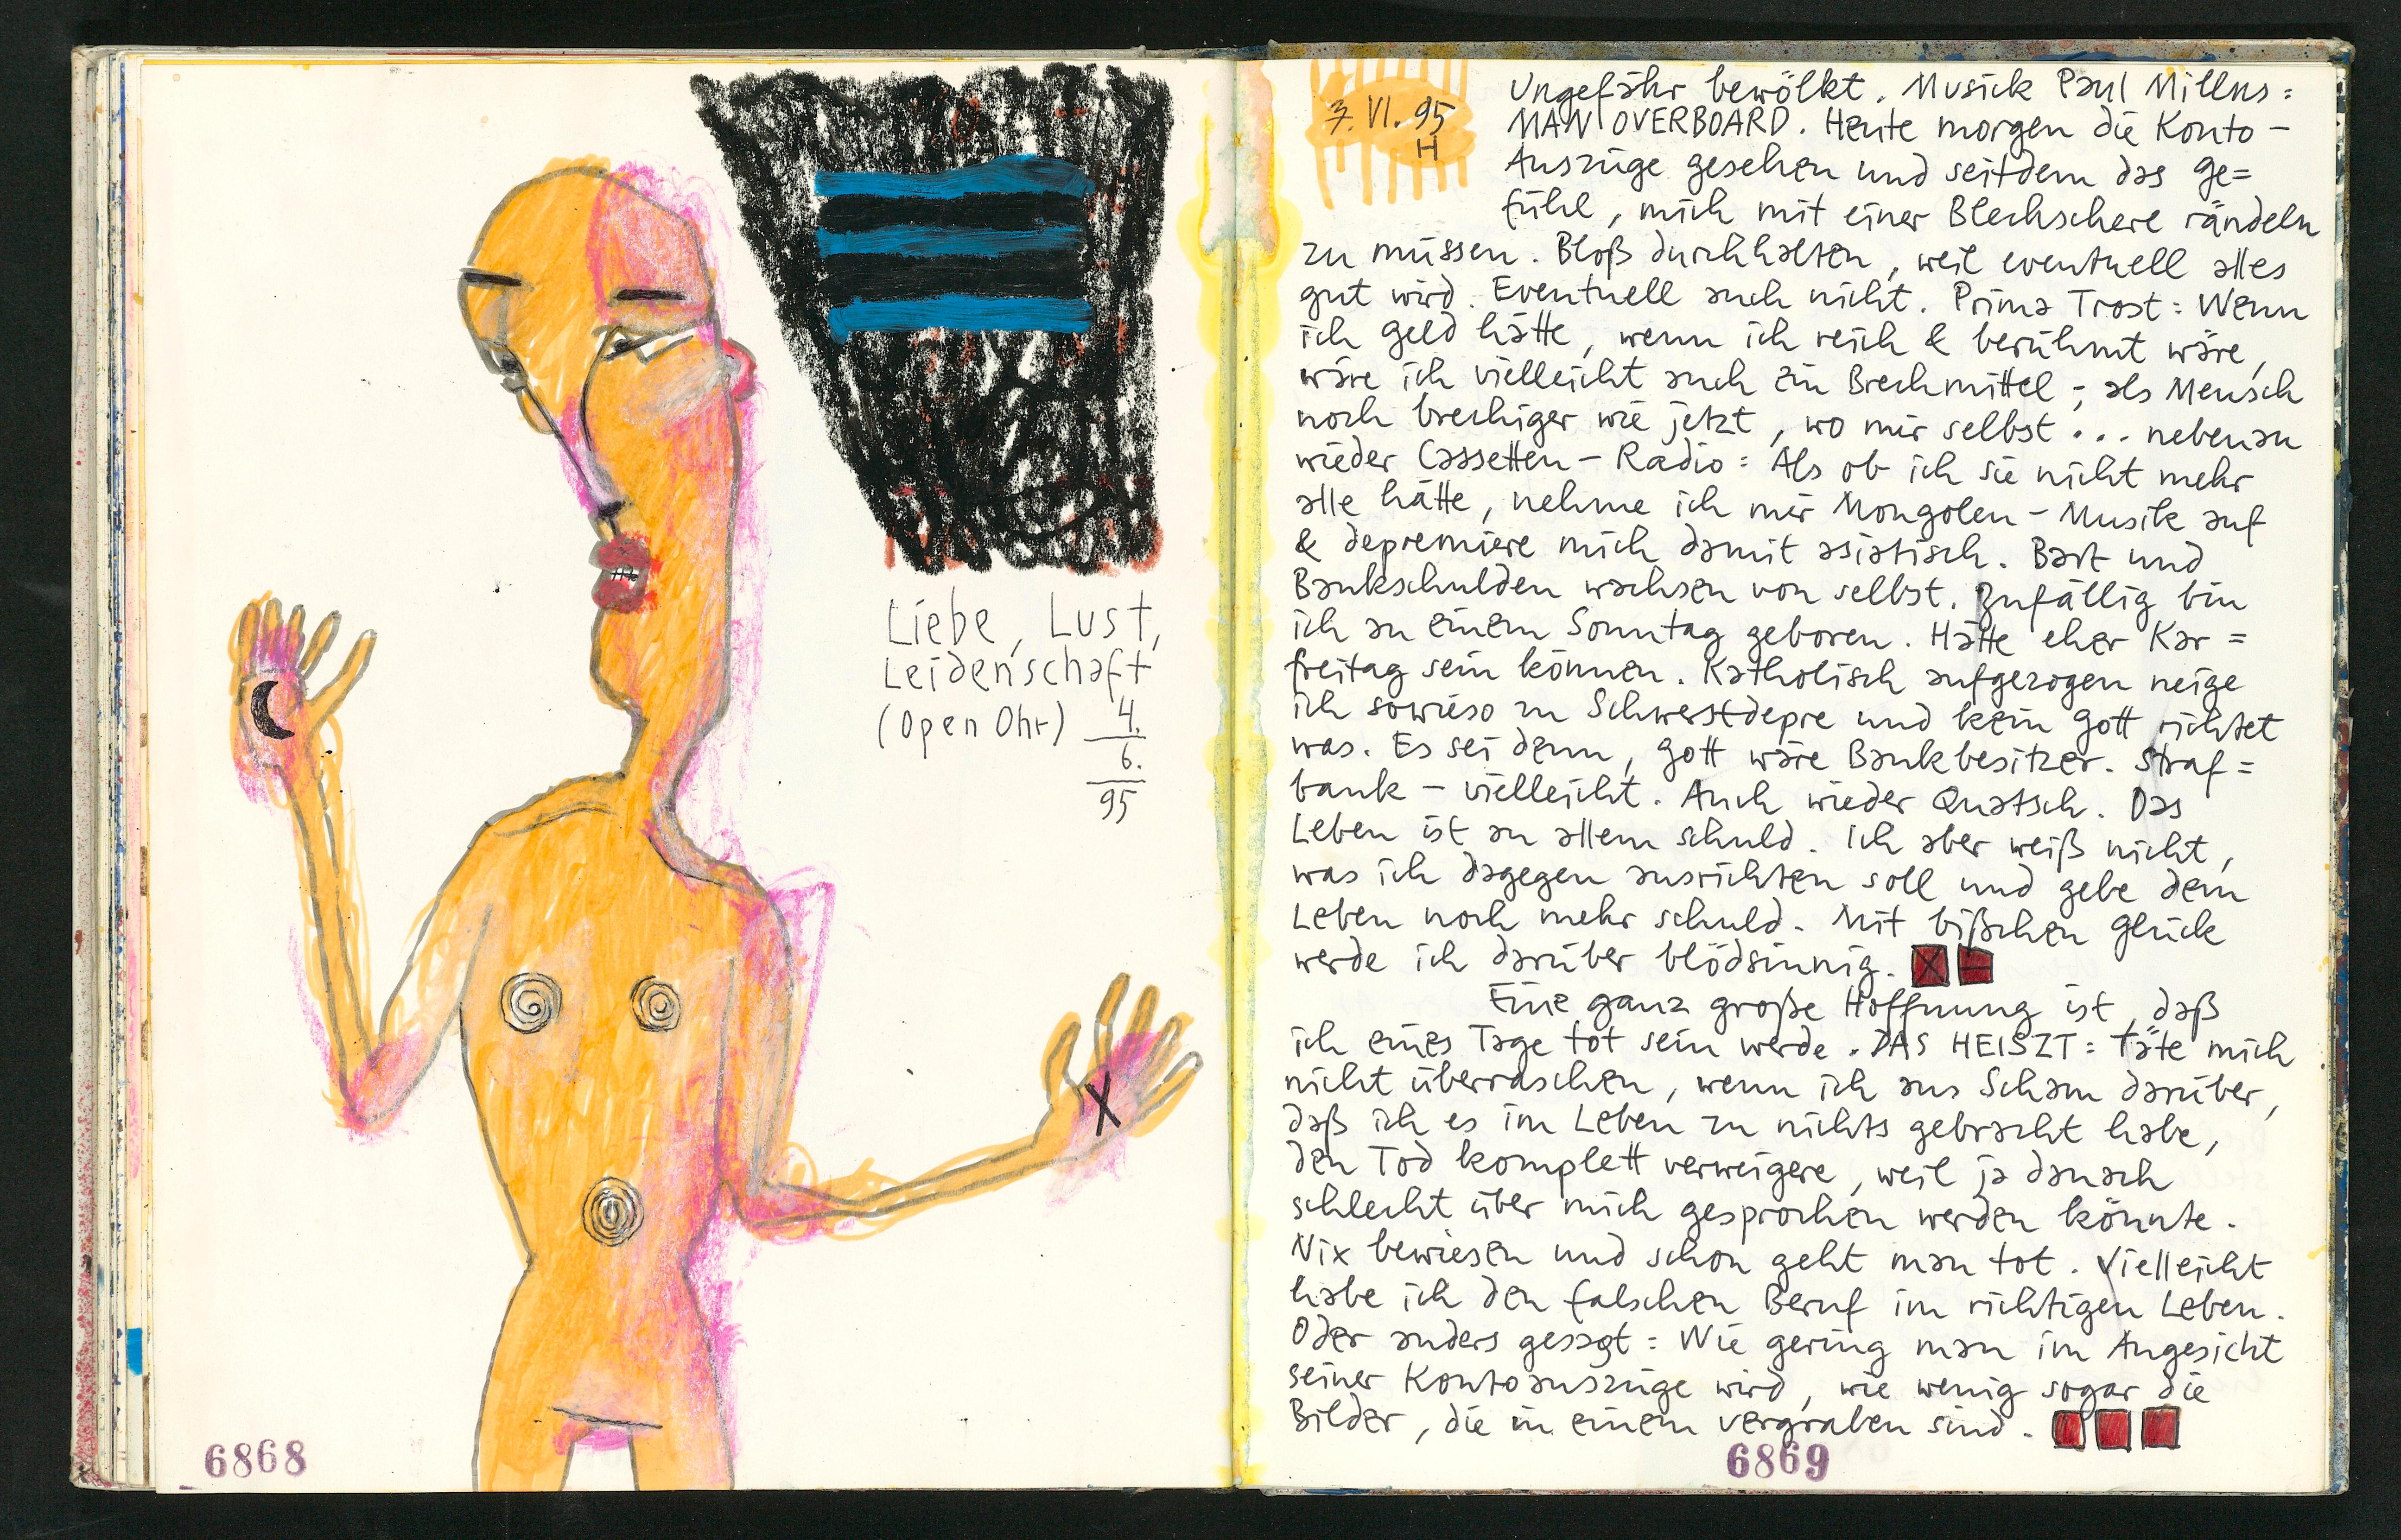 Liebe, Lust,
Leidenschaft
(Open Ohr) 4.
6.
95
6868
7. VI. 95
H
Ungefähr bewölkt. Musick Paul Millns:
MAN OVERBOARD. Heute morgen die Konto-
Auszüge gesehen und seitdem das Ge=
fühl, mich mit einer Blechschere rändeln
zu müssen. Bloß durchhalten, weil eventuell alles
gut wird. Eventuell auch nicht. Prima Trost: Wenn
ich Geld hätte, wenn ich reich & berühmt wäre,
wäre ich vielleicht auch ein Brechmittel; als Mensch
noch brechiger wie jetzt, wo mir selbst... nebenan
wieder Cassetten-Radio: Als ob ich sie nicht mehr
alle hätte, nehme ich mir Mongolen-Musik auf
& depremiere mich damit asiatisch. Bart und
Bankschulden wachsen von selbst. Zufällig bin
ich an einem Sonntag geboren. Hätte eher Kar=
freitag sein können. Katholisch aufgezogen neige
ich sowieso zu Schwerstdepre und kein Gott richtet
was. Es sei denn, Gott wäre Bankbesitzer. Straf=
bank - vielleicht. Auch wieder Quatsch. Das
Leben ist an allem schuld. Ich aber weiß nicht,
was ich dagegen ausrichten soll und gebe dem
Leben noch mehr schuld. Mit bißchen Glück
werde ich darüber blödsinnig.
Eine ganz große Hoffnung ist, daß
ich eines Tage tot sein werde. DAS HEISZT: täte mich
nicht überraschen, wenn ich aus Scham darüber,
daß ich es im Leben zu nichts gebracht habe,
den Tod komplett verweigere, weil ja danach
schlecht über mich gesprochen werden könnte.
Nix bewiesen und schon geht man tot. Vielleicht
habe ich den falschen Beruf im richtigen Leben.
Oder anders gesagt: Wie gering man im Angesicht
seiner Kontoauszüge wird, wie wenig sogar die
Bilder, die in einem vergraben sind.
6869